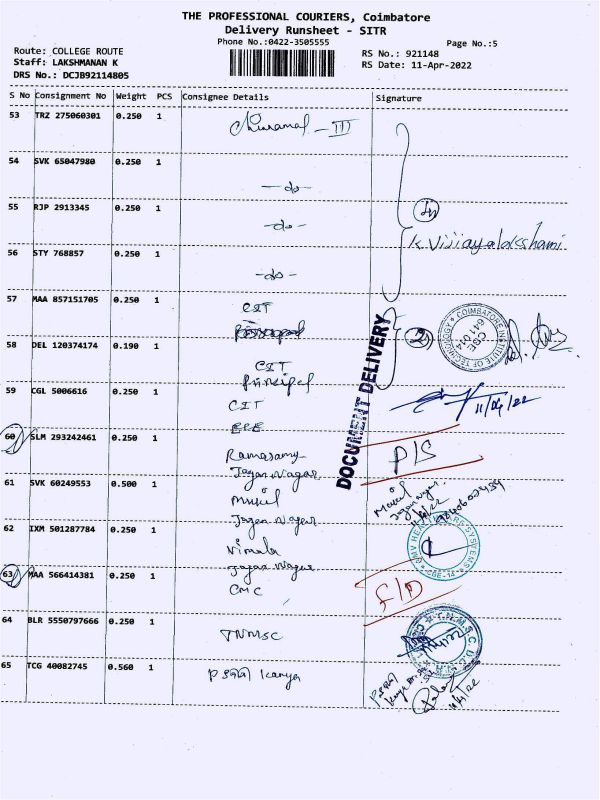 THE PROFESSIONAL COURIERS, Coimbatore
Delivery Runsheet - SITR
Phone No.:0422-3505555
Page No.:5
Route: COLLEGE ROUTE
Staff: LAKSHMANAN K
DRS No.: DCJB92114805
RS No.: 921148
RS Date: 11-Apr-2022
S No Consignment No Weight PCS Consignee Details Signature
53 TRZ 275060301 0.250 1
III
54 SVK 65047980 0.250 1
-do-
55 RJP 2913345 0.250 1
-do-
K Vijiayalakshami
56 STY 768857 0.250 1
-do-
57 MAA 857151705 0.250 1
CIT
COIMBATORE INSTITUTE OF TECHNOLOGY
CBE
641 014
58 DEL 120374174 0.190 1
CIT
Principal
DOCUMENT DELIVERY
59 CGL 5006616 0.250 1
CIT
EEE
11/04/22
60 SLM 293242461 0.250 1
Ramasamy
Jagan Nagar
P/S
61 SVK 60249553 0.500 1
Mukil
Jagan Nagar
Mukil
Jagan Nagar
62 IXM 501287784 0.250 1
Vimala
Jagan Nagar
CBE-14
63 MAA 566414381 0.250 1
CMC
F/D
64 BLR 5550797666 0.250 1
TNMSC
T.N.M.S.C
65 TCG 40082745 0.560 1
Kanya
11/4/22